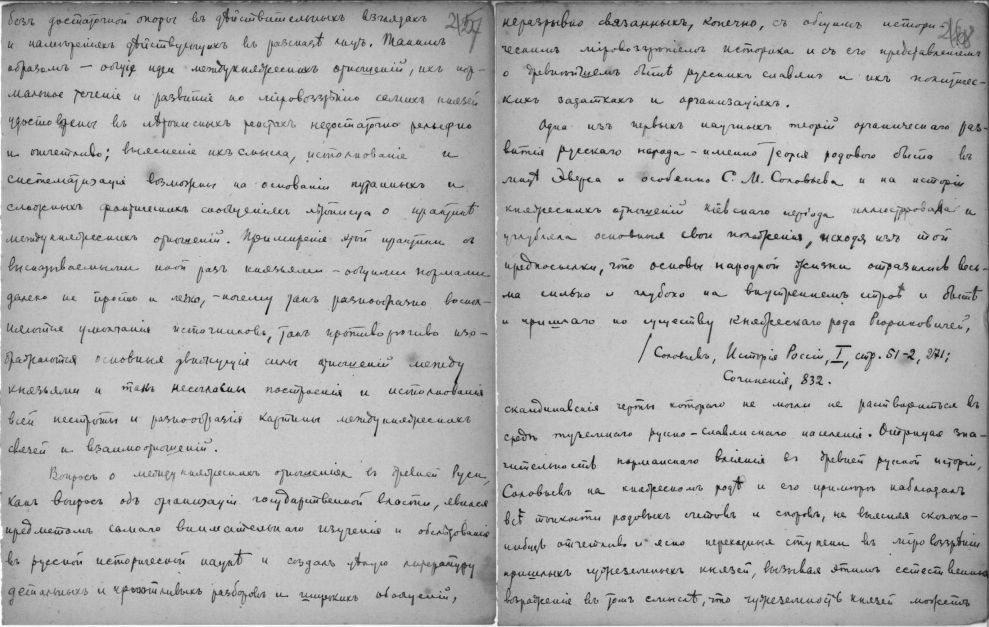 безъ достаточной опоры въ дѣйствительныхъ взглядахъ
и намѣренiяхъ дѣйствующихъ въ разсказѣ лицъ. Такимъ
образомъ – общiя идеи междукняжескихъ отношенiй, ихъ нор-
мальное теченiе и развитiе по мiровоззрѣнiю самихъ князей
удостовѣрены въ лѣтописныхъ рѣчахъ недостаточно рельефно
и отчетливо; выясненiе ихъ смысла, истолкованiе и
систематизацiя возможны на основанiи путанныхъ и
сложныхъ фактическихъ сообщенiяхъ лѣтописца о практикѣ
междукняжескихъ отношенiй. Примиренiе этой практики съ
высказываемыми иной разъ князьями – общими нормами
далеко не просто и легко, – почему такъ разнообразно воспол-
няются умолчанiя источниковъ, такъ противорѣчиво изо-
бражаются основныя движущiя силы отношенiй между
князьями и такъ несогласны построенiя и истолкованiя
всей пестроты и разнообразiя картины междукняжескихъ
связей и взаимоотношенiй.
Вопросъ о междукняжескихъ отношенiяхъ въ древней Руси,
какъ вопросъ объ организацiи государственной власти, явился
предметомъ самаго внимательнаго изученiя и обслѣдованiя
въ русской исторической наукѣ и создалъ цѣлую литературу
детальныхъ и кропотливыхъ разборовъ и широкихъ обобщенiй,
неразрывно связанныхъ, конечно, съ общимъ истори-
268
ческимъ мiровоззрѣнiемъ историка и съ его представленiемъ
о древнѣйшемъ бытѣ русскихъ славянъ и ихъ политичес-
кихъ задаткахъ и организацiяхъ.
Одна изъ первыхъ научныхъ теорiй органическаго раз-
витiя русскаго народа – именно теорiя родового быта въ
лицѣ Эверса и особенно С. М. Соловьева и на исторiи
княжескихъ отношенiй Кiевскаго перiода иллюстровала и
углубляла основныя свои положенiя, исходя изъ той
предпосылки, что основы народной жизни отразились весь-
ма сильно и глубоко на внутреннемъ строѣ и бытѣ
и пришлаго по существу княжескаго рода Рюриковичей,
/ Соловьевъ, Исторiя Россiи, I, стр. 51-2, 271;
Сочиненiя, 832.
скандинавскiя черты котораго не могли не раствориться въ
средѣ туземнаго русско-славянскаго населенiя. Отрицая зна-
чительность норманскаго влiянiя въ древней русской исторiи,
Соловьевъ на княжескомъ родѣ и его примѣрѣ наблюдалъ
всѣ тонкости родовыхъ счетовъ и споровъ, не выясняя сколько-
нибудь отчетливо и ясно переходныя ступени въ мiровоззрѣнiи
пришлыхъ чужеземныхъ князей, вызывая этимъ естественныя
возраженiя въ томъ смыслѣ, что чужеземность князей можетъ